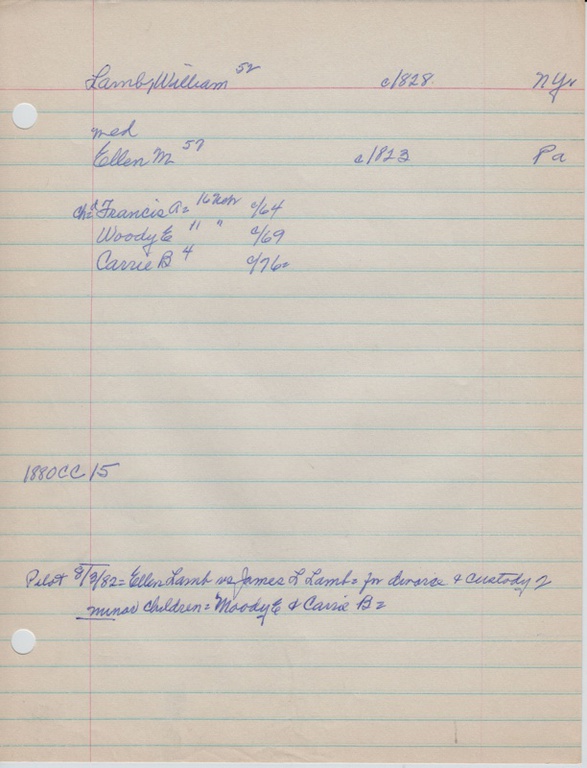 Lamb, William 52 c/828. NYr
med
Ellen M 57 c/823 Pa
chd= Francis A= 16 Nebr c/64
Woody E " " c/69
Carrie B 4 c/76=
1880CC 15
Pilot 8/3/82= Ellen Lamb vs James L Lamb= for divorce & custody 2
minor children= Moody E & Carrie B=